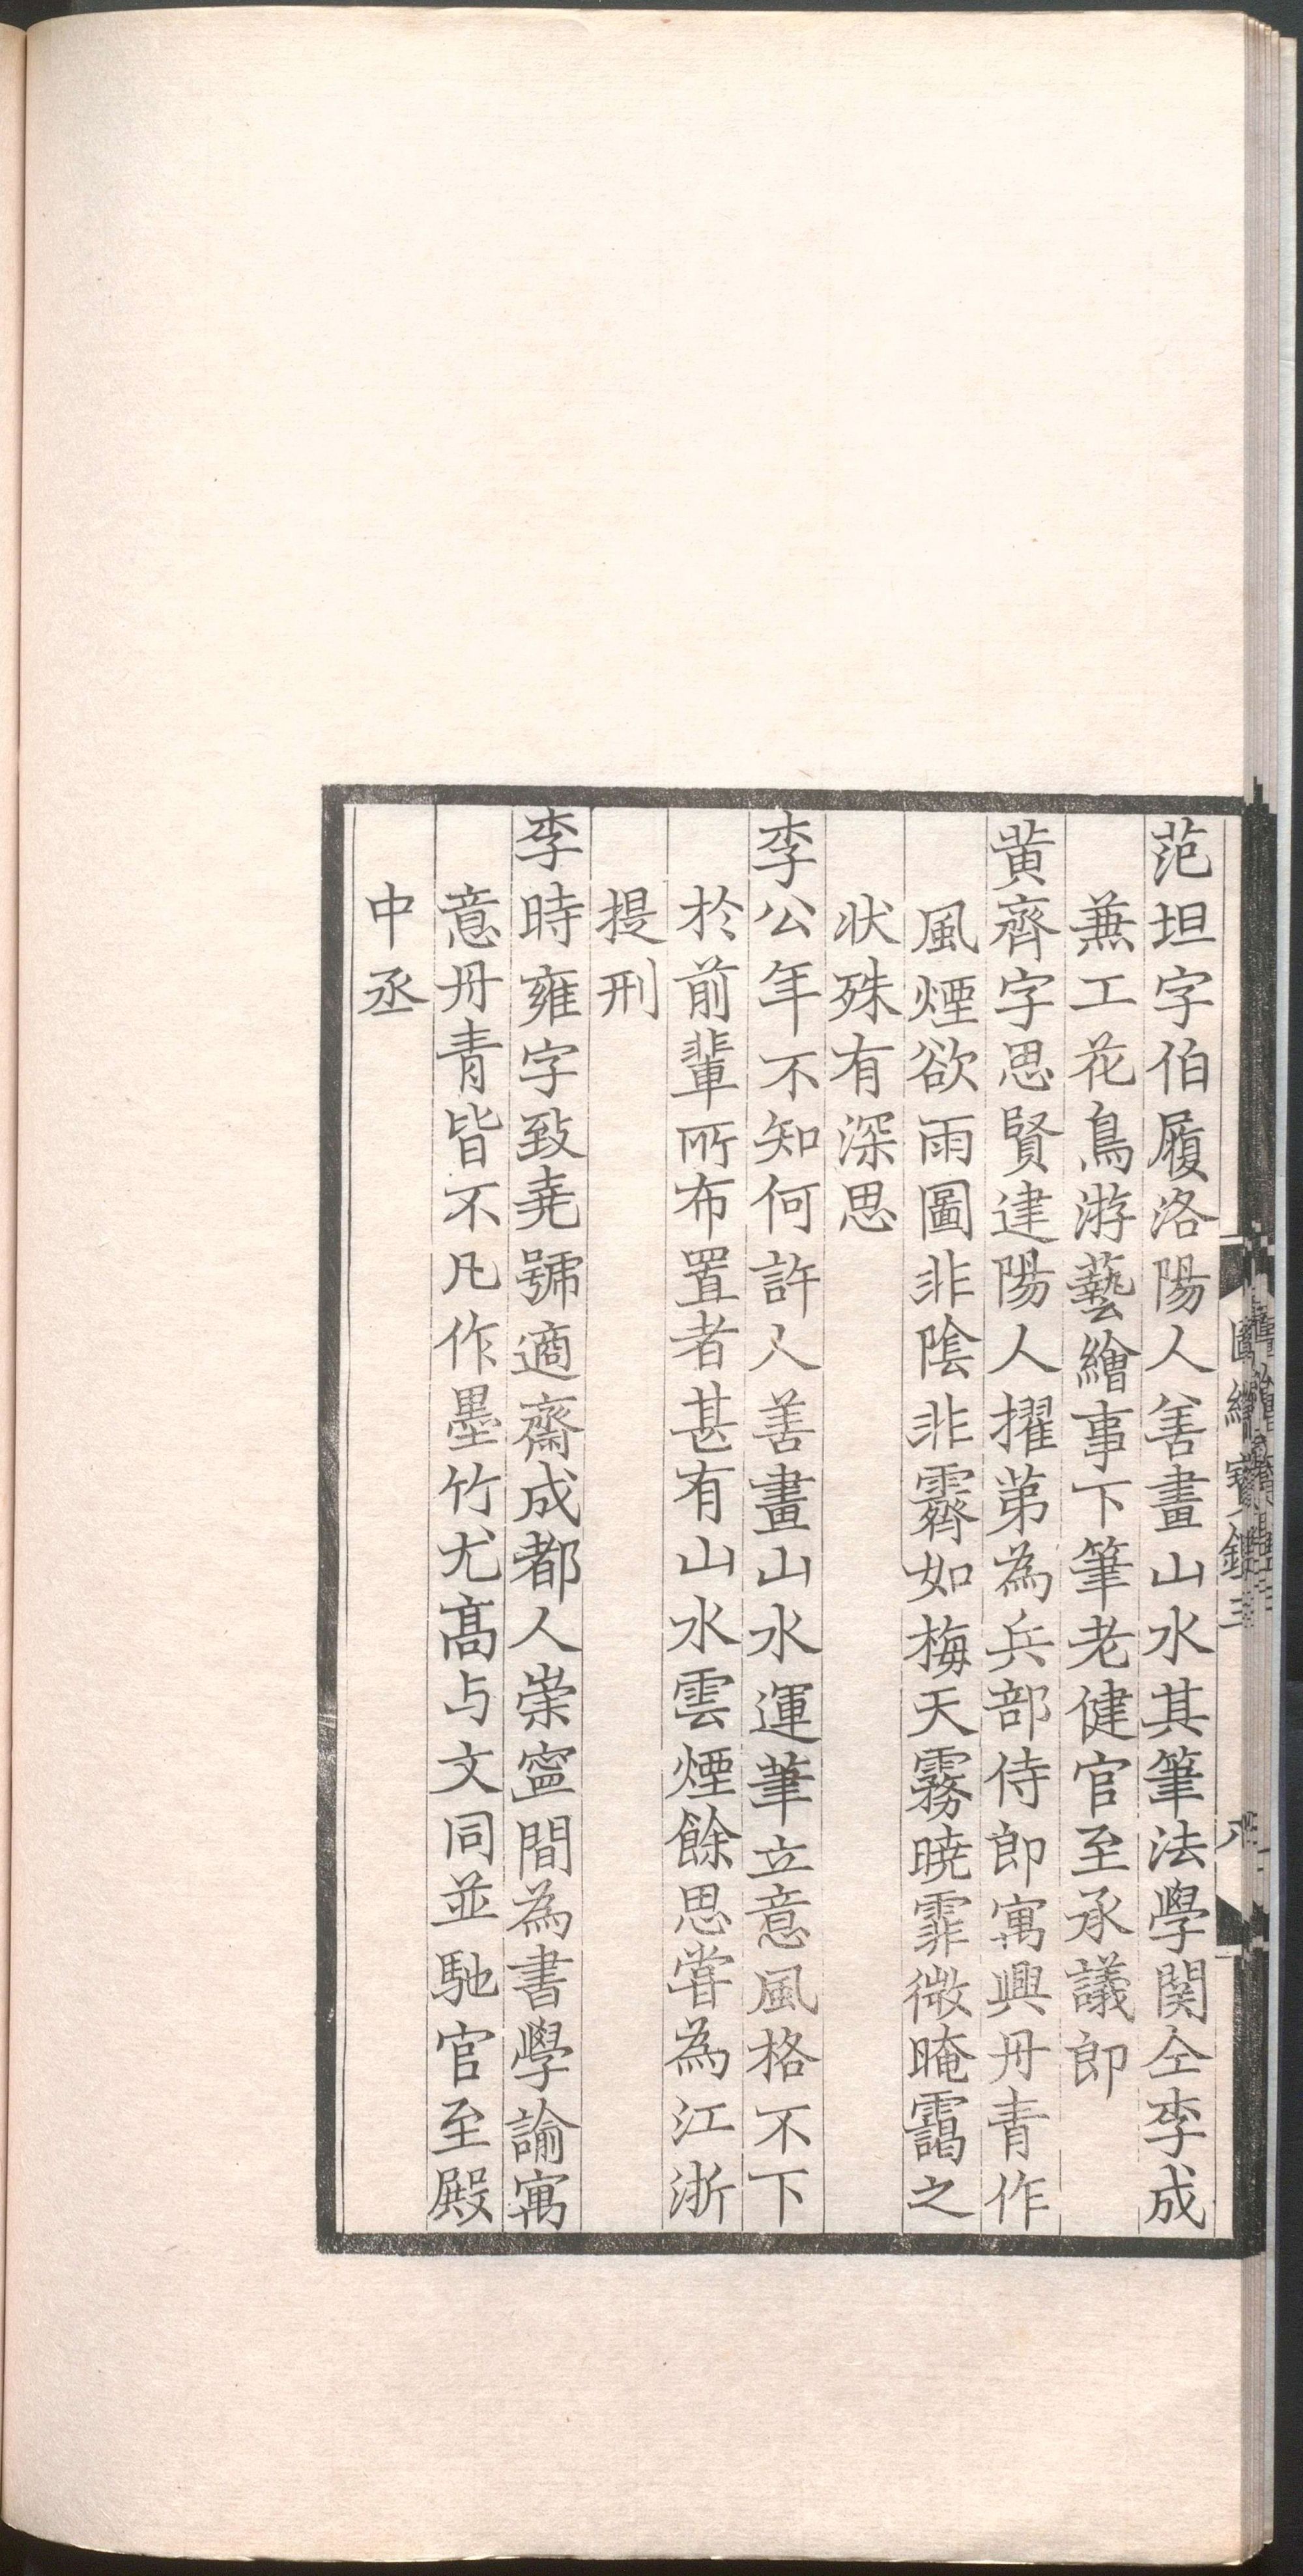 范坦字伯履洛陽人善畫山水其筆法學関仝李成
兼工花鳥游藝繪事下筆老健官至承議郎
黄齊字思賢建陽人擢苐為兵部侍郎寓興丹青作
風煙欲雨圖非陰非霽如梅天霧曉霏微晻靄之
状殊有深思
李公年不知何許人善畫山水運筆立意風格不下
於前輩所布置者甚有山水雲煙餘思嘗為江浙
提刑
李時雍字致堯號適齋成都人崇寧間為書學諭寓
意丹青皆不凡作墨竹尤髙与文同並馳官至殿
中丞
圖繪寳鑑三
八